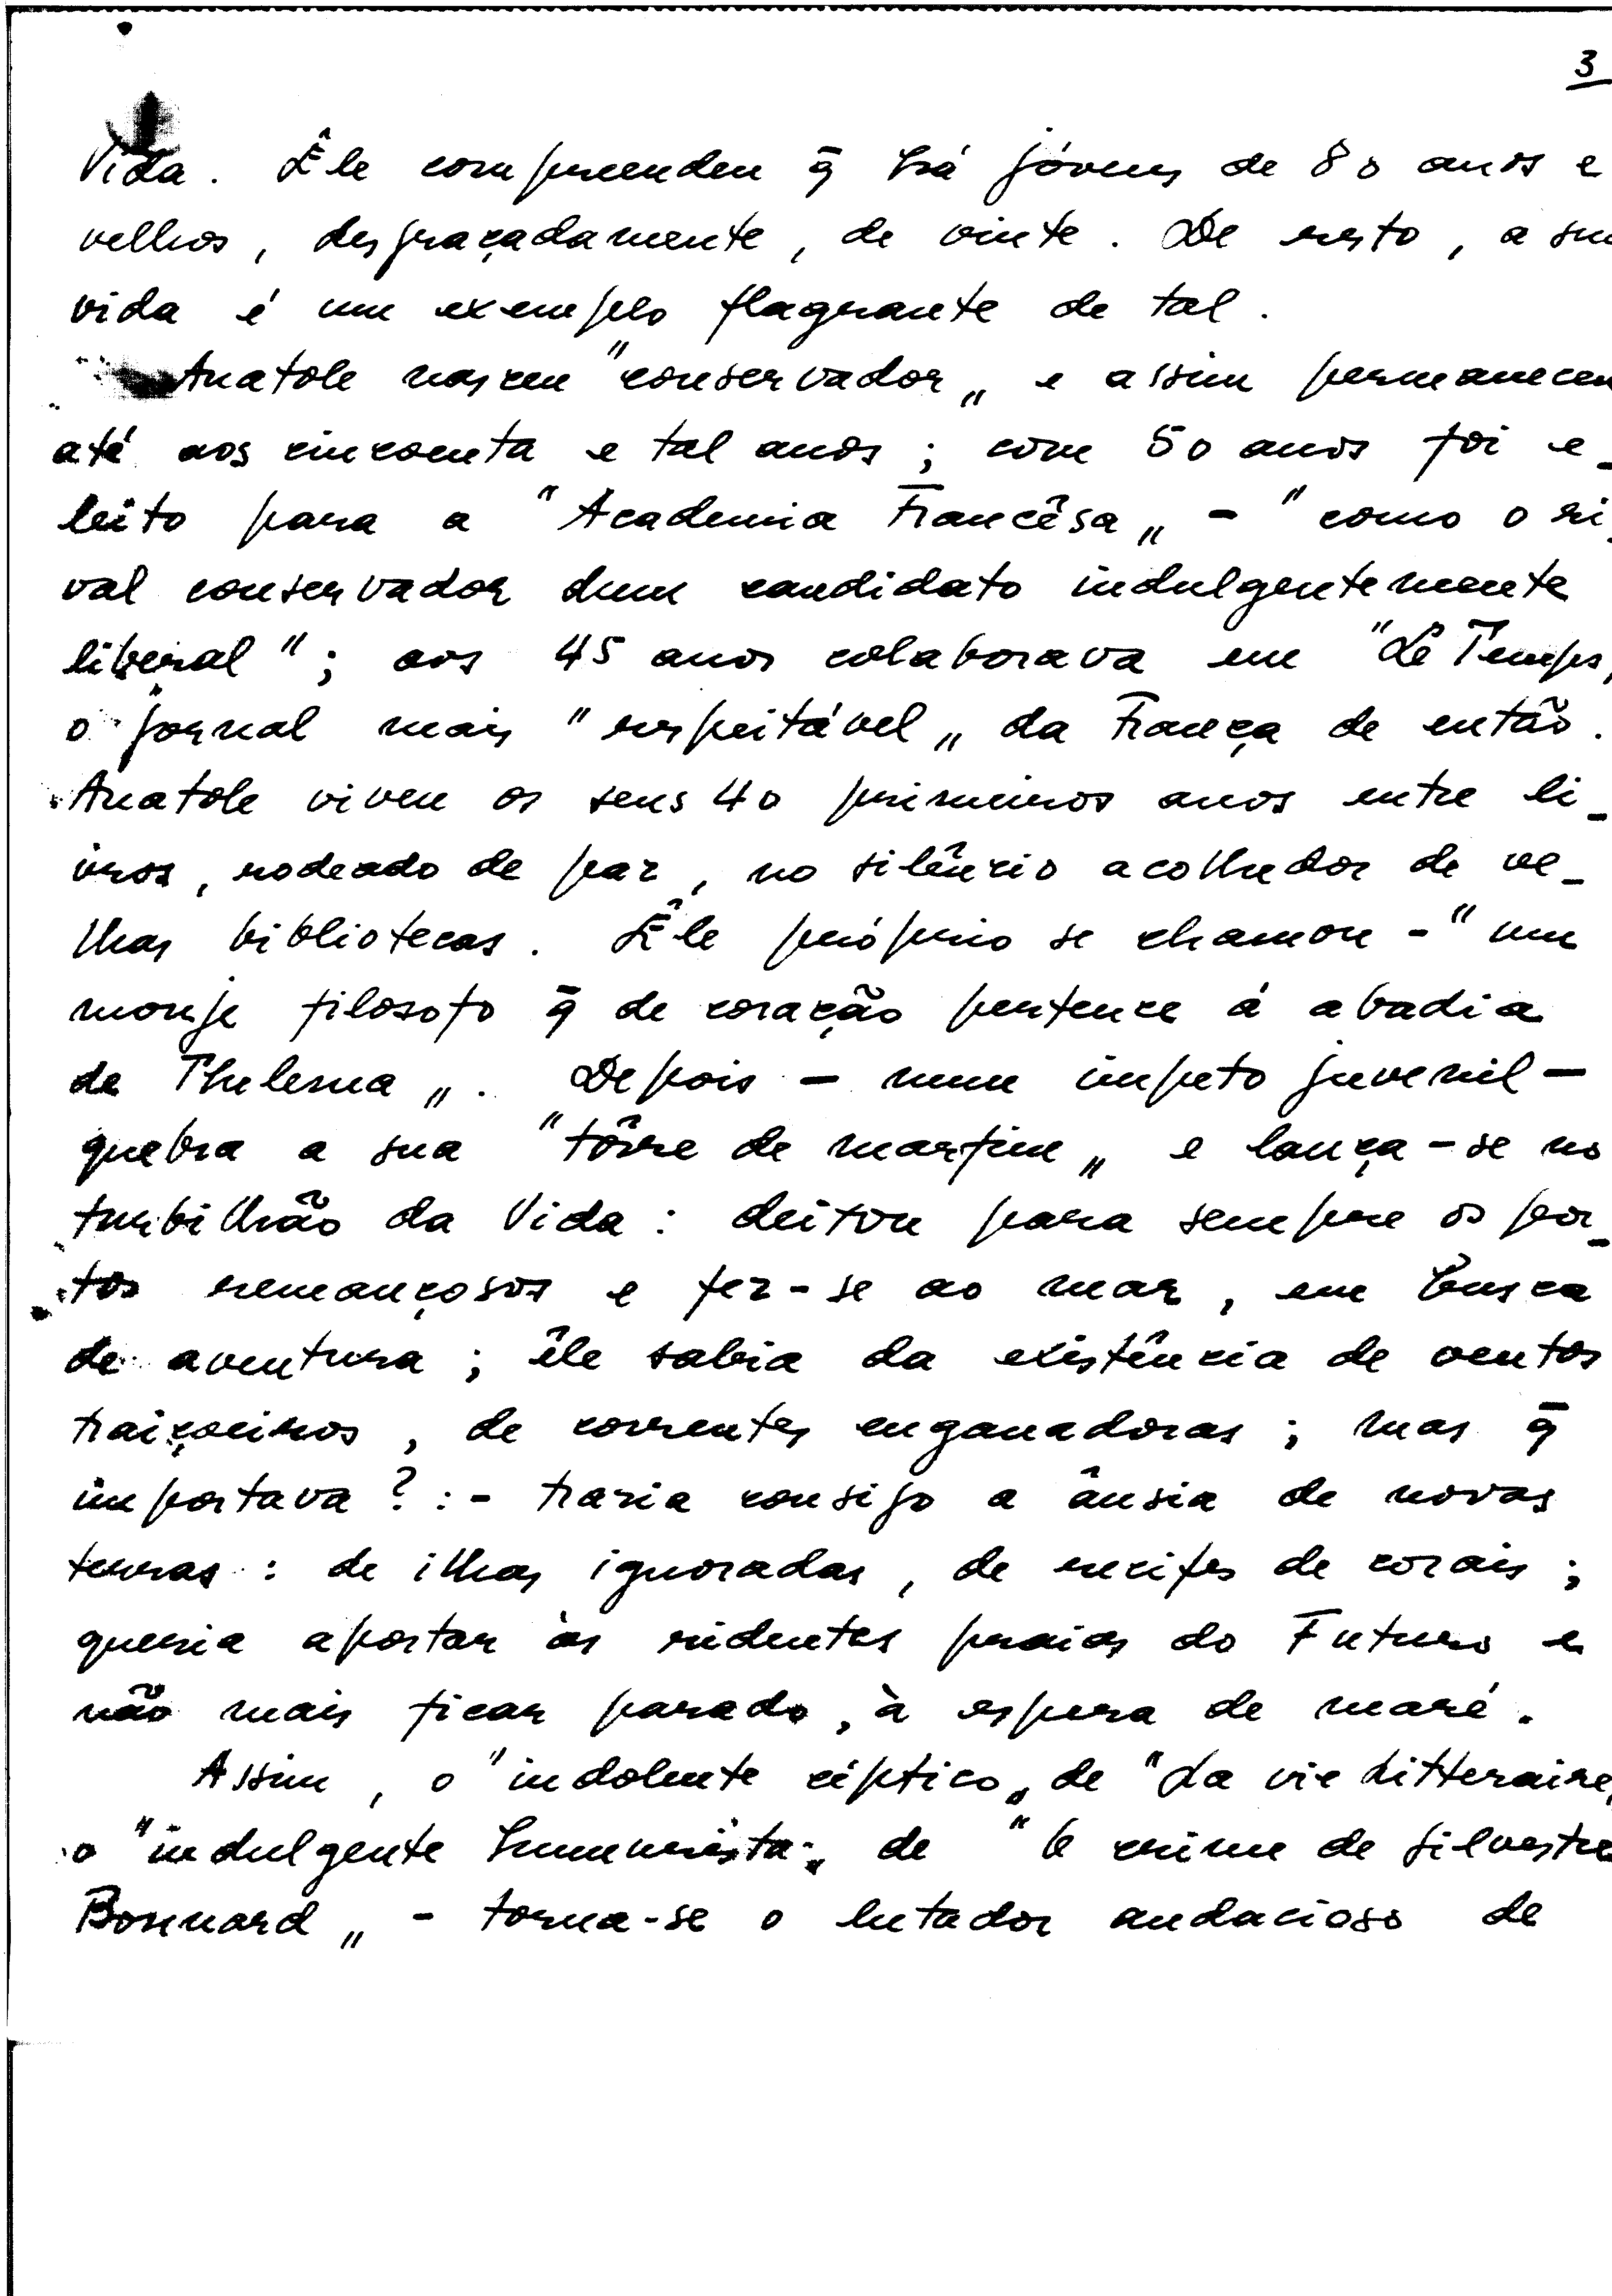 3
Vida. Êle compreendeu q̄ há jóvens de 80 anos e
velhos, desgraçadamente, de vinte. De resto, a sua
vida é um exemplo flagrante de tal.
Anatole nasceu "conservador„ e assim permaneceu
até aos cincoenta e tal anos; com 50 anos foi e_
leito para a "Academia Francêsa„ - "como o ri_
val conservador dum candidato indulgentemente
liberal"; aos 45 anos colaborava em "Le Temps,
o jornal mais "respeitável„ da França de então.
Anatole viveu os seus 40 primeiros anos entre li_
vros, rodeado de paz, no silêncio acolhedor de ve_
lhas bibliotecas. Êle próprio se chamou - "um
monje filosofo q̄ de coração pertence á abadia
de Thelema„. Depois — num impeto juvenil —
quebra a sua "tôrre de marfim„ e lança-se no
turbilhão da Vida: deitou para sempre os por_
tos remançosos e fez-se ao mar, em busca
de aventura; êle sabia da existência de ventos
traiçoeiros, de correntes enganadoras; mas q̄
importava?:- trazia consigo a ânsia de novas
terras: de ilhas ignoradas, de recifes de corais;
queria aportar ás ridentes praias do Futuro e
não mais ficar parado, à espera de maré.
Assim, o "indolente céptico„ de "La vie Litteraire,
o "indulgente humorista„ de "O crime de Silvestre
Bonnard„ - torna-se o lutador audacioso de